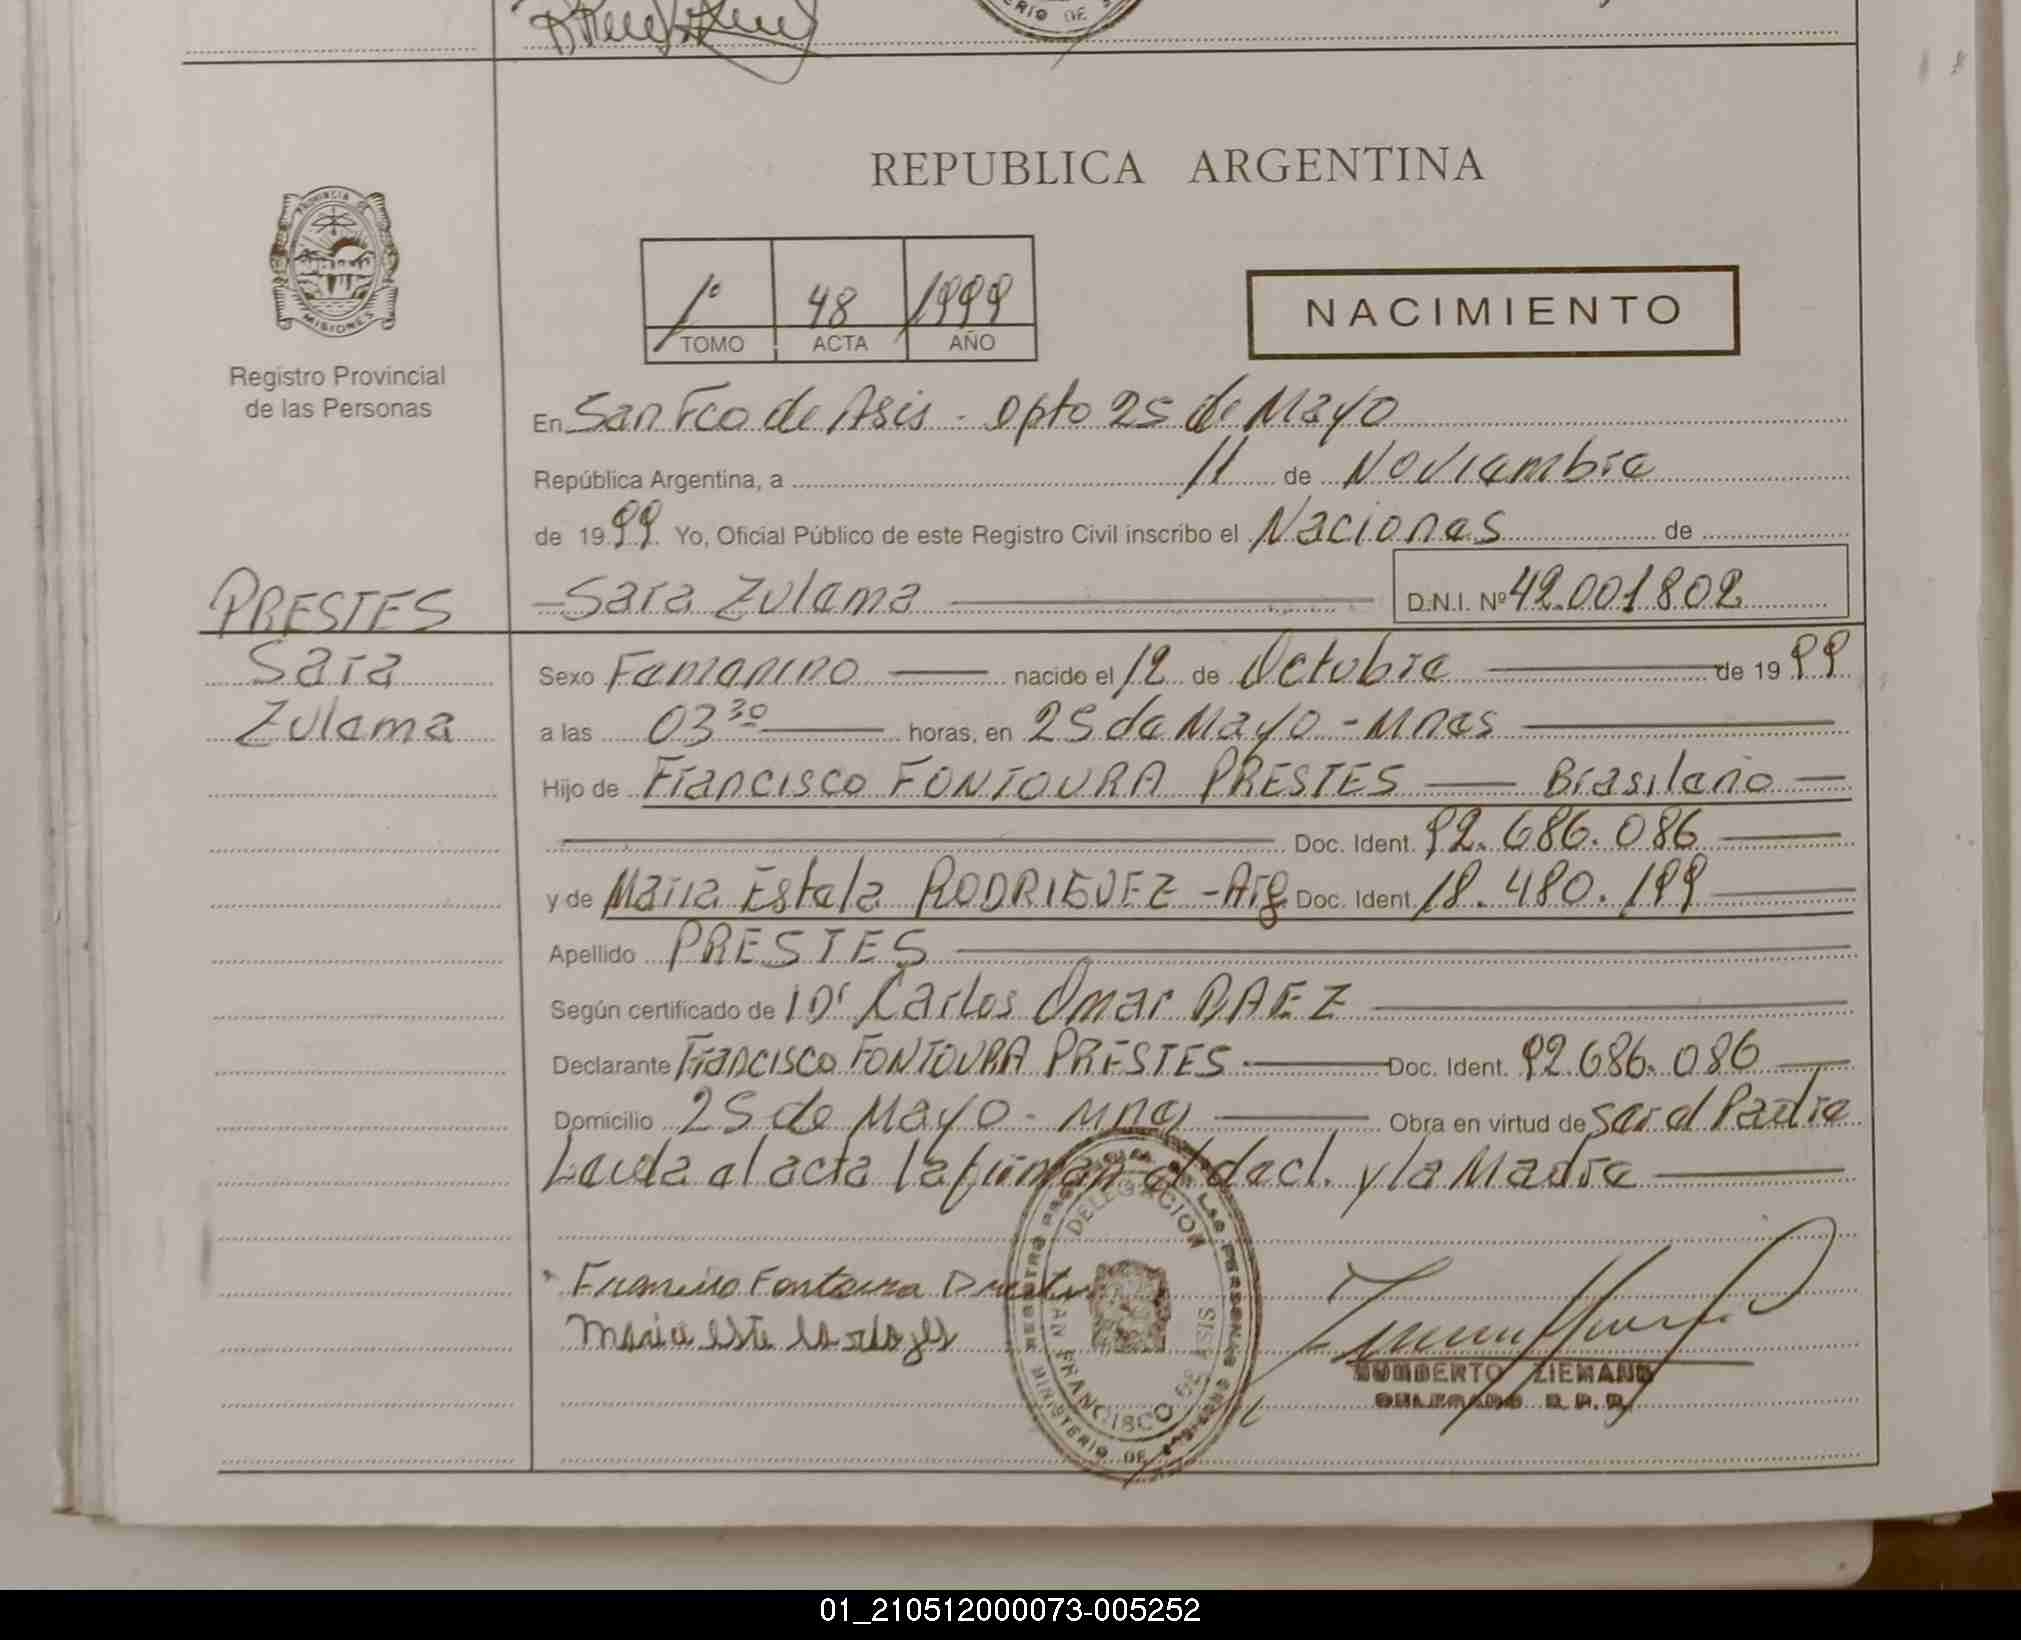 REPUBLICA ARGENTINA
PROVINCIA DE MISIONES
Registro Provincial
de las Personas
1º 48 1999
TOMO ACTA AÑO
NACIMIENTO
En San Fco de Asis - Dpto 25 de Mayo
República Argentina, a 11 de Noviembre
de 1999 Yo, Oficial Público de este Registro Civil inscribo el Nacionas de
PRESTES Sara Zulema D.N.I. Nº 42.001802
Sara
Zulema
Sexo Femenino nacido el 12 de Octubre de 1999
a las 03 30 horas, en 25 de Mayo - Mnes
Hijo de Francisco FONTOURA PRESTES Brasileño
Doc. Ident. 92.686.086
y de Maria Estela RODRIGUEZ - Arg Doc. Ident. 18.480.199
Apellido PRESTES
Según certificado de Dr Carlos Omar BAEZ
Declarante Francisco FONTOURA PRESTES Doc. Ident. 92.686.086
Domicilio 25 de Mayo - Mnes Obra en virtud de Ser el Padre
Leida el acta la firman el decl. y la Madre
DELEGACION
SAN FRANCISCO DE ASIS
MINISTERIO DE
ZIEMANN
01_210512000073-005252